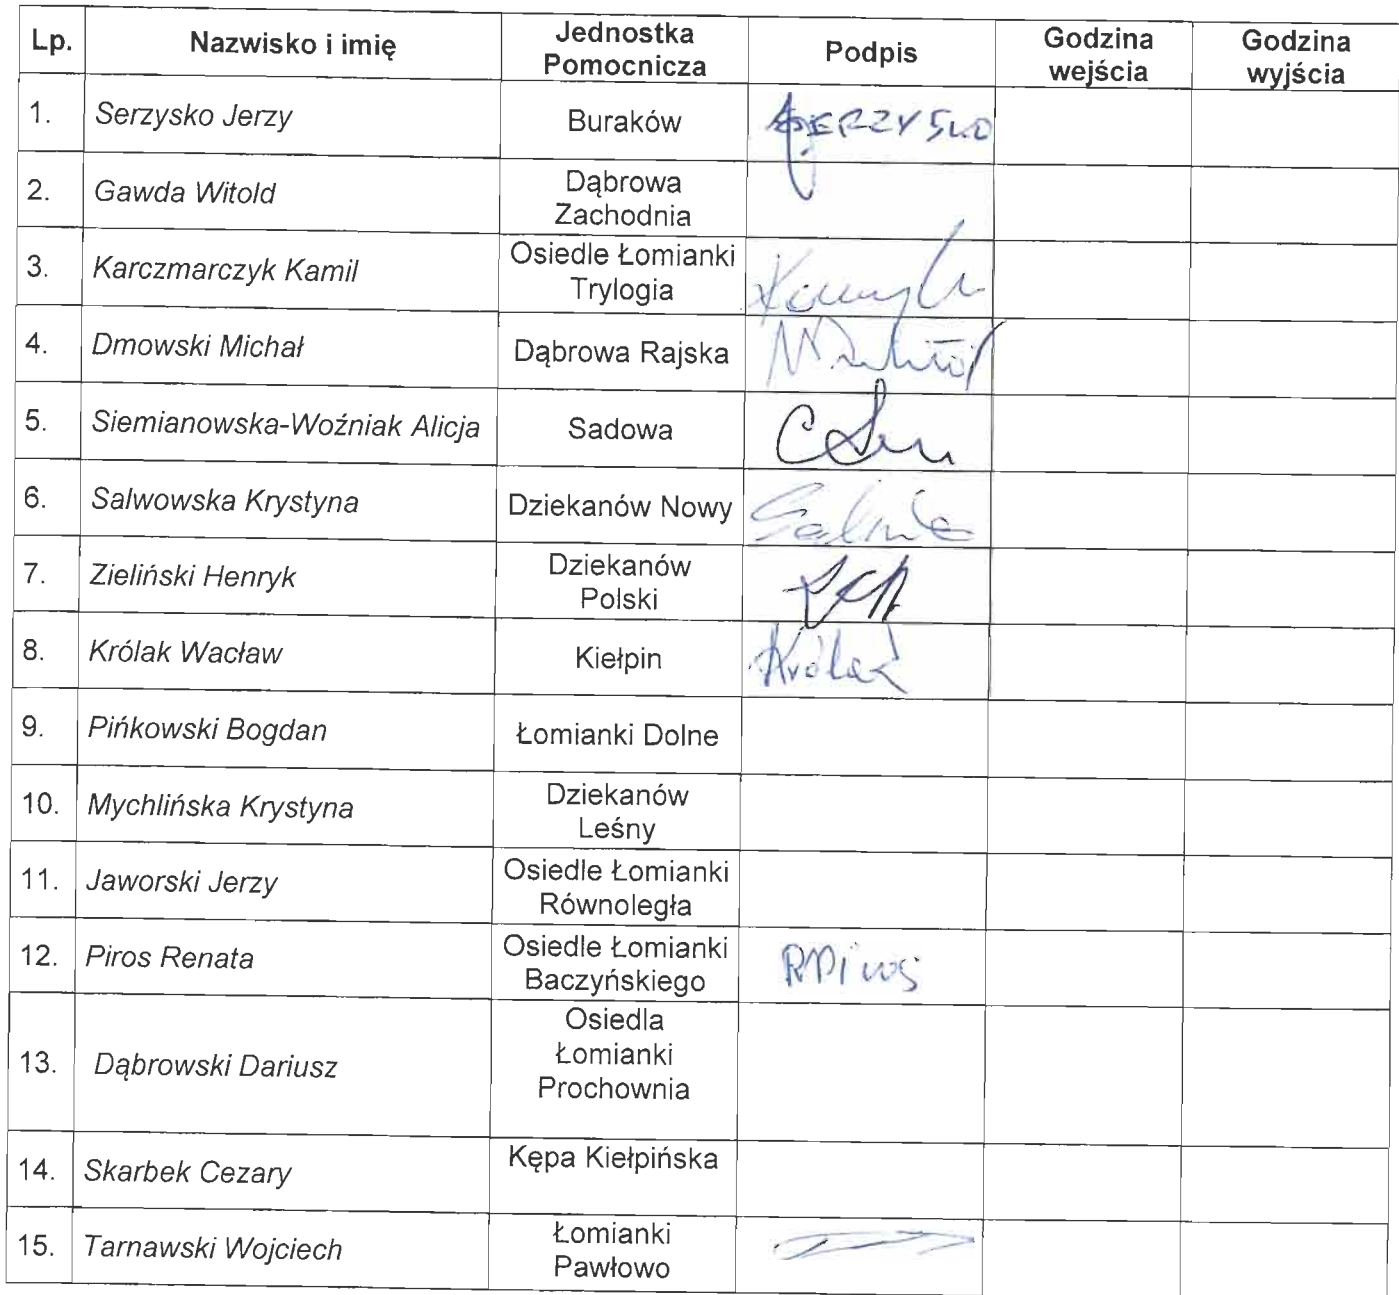 Lp. Nazwisko i imię Jednostka Pomocnicza Podpis Godzina wejścia Godzina wyjścia
1. Serzysko Jerzy Buraków SERZYSKO
2. Gawda Witold Dąbrowa Zachodnia
3. Karczmarczyk Kamil Osiedle Łomianki Trylogia
4. Dmowski Michał Dąbrowa Rajska
5. Siemianowska-Woźniak Alicja Sadowa
6. Salwowska Krystyna Dziekanów Nowy
7. Zieliński Henryk Dziekanów Polski
8. Królak Wacław Kiełpin Królak
9. Pińkowski Bogdan Łomianki Dolne
10. Mychlińska Krystyna Dziekanów Leśny
11. Jaworski Jerzy Osiedle Łomianki Równoległa
12. Piros Renata Osiedle Łomianki Baczyńskiego RPiros
13. Dąbrowski Dariusz Osiedla Łomianki Prochownia
14. Skarbek Cezary Kępa Kiełpińska
15. Tarnawski Wojciech Łomianki Pawłowo